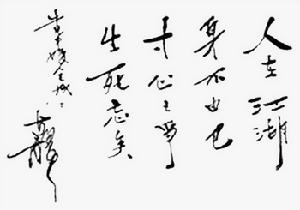 人在江湖
身不由己
寸心之夢
生死忘矣
古龍